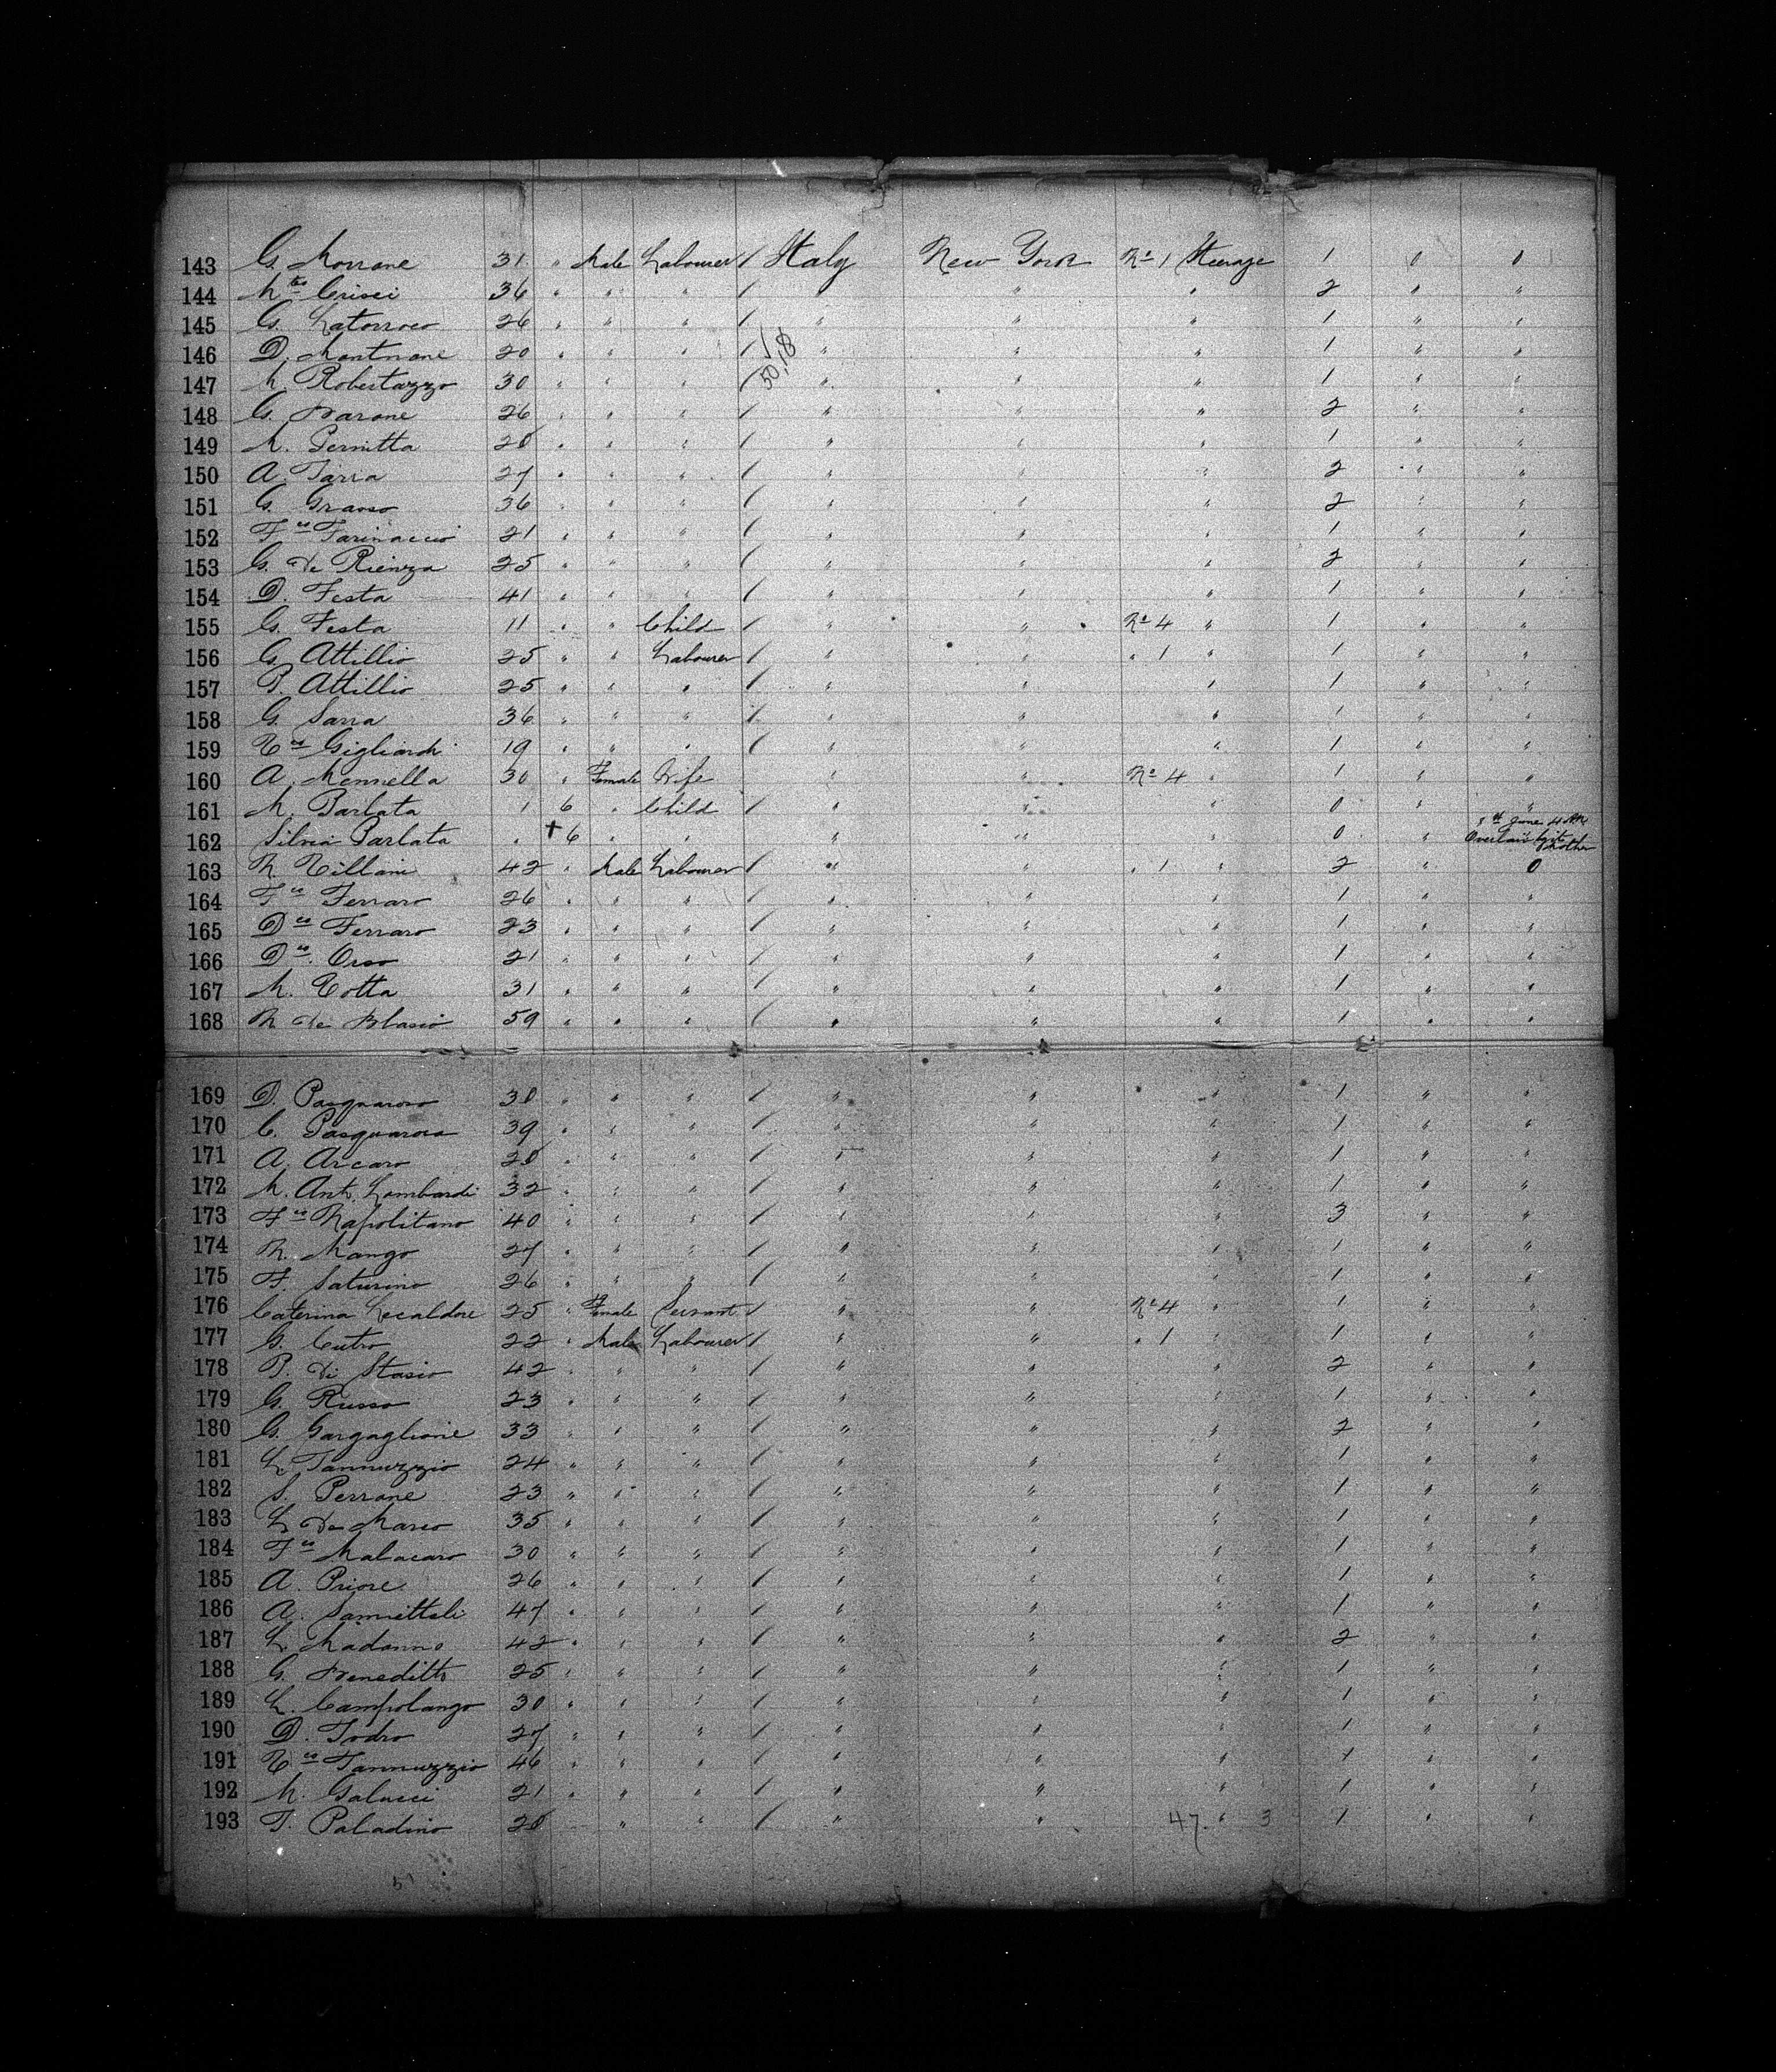 143 G. Morrane 31 " Male Labourer / Italy New York No 1 Steerage 1 0 0
144 M Crisci 36 " " " / " " " 2 " "
145 G. Latorroco 26 " " " / " " " 1 " "
146 D. 20 " " " / " " " 1 " "
147 M. Robertazzo 30 " " " / 50,18 " " " 1 " "
148 G. Barone 26 " " " / " " " 2 " "
149 M. Pernitta 20 " " " / " " " 1 " "
150 A. 27 " " " / " " " 2 " "
151 G. Grasso 36 " " " / " " " 2 " "
152 Fco Farinaccio 21 " " " / " " " 1 " "
153 G. de Rienza 25 " " " / " " " 2 " "
154 D. Festa 41 " " " / " " " 1 " "
155 G. Festa 11 " " Child / " " No 4 " 1 " "
156 G. Attillio 25 " " Labourer / " " " 1 " 1 " "
157 P. Attillio 25 " " " / " " " 1 " "
158 G. Sarra 36 " " " / " " " 1 " "
159 Gigliardi 19 " " " / " " " 1 " "
160 A. Mennella 30 " Female Wife " " No 4 " 1 " "
161 M. Barbata 1 6 " Child / " " " 0 " "
162 Silvia Barbata " + 6 " " " " " 0 " June 4 AM Overlain by its Mother
163 N. Villani 42 " Male Labourer / " " " 1 " 2 " 0
164 Fco Ferraro 26 " " " / " " " 1 " "
165 Dco Ferraro 23 " " " / " " " 1 " "
166 Dco. Orso 21 " " " / " " " 1 " "
167 M. Cotta 31 " " " / " " " 1 " "
168 N. de Blasio 59 " " " / " " " 1 " "
169 D. Pasquaroso 30 " " " / " " " 1 " "
170 C. Pasquarosa 39 " " " / " " " 1 " "
171 A. Arcaro 20 " " " / " " " 1 " "
172 M. Ant. Lombardi 32 " " " / " " " 1 " "
173 Fco Napolitano 40 " " " / " " " 3 " "
174 N. Mango 27 " " " / " " " 1 " "
175 F. Saturino 26 " " " / " " " 1 " "
176 Caterina Lecaldore 25 " Female Servant / " " No 4 " 1 " "
177 G. Cutro 22 " Male Labourer / " " " 1 " 1 " "
178 P. di Stasio 42 " " " / " " " 2 " "
179 G. Russo 23 " " " / " " " 1 " "
180 G. Gargaglione 33 " " " / " " " 2 " "
181 L. Iannuzzio 24 " " " / " " " 1 " "
182 S. Perrone 23 " " " / " " " 1 " "
183 L. de Marco 35 " " " / " " " 1 " "
184 Fco Malacaro 30 " " " / " " " 1 " "
185 A. Priore 26 " " " / " " " 1 " "
186 A. 47 " " " / " " " 1 " "
187 L. Madonno 42 " " " / " " " 2 " "
188 G. Beneditto 25 " " " / " " " 1 " "
189 L. Campolango 30 " " " / " " " 1 " "
190 D. 27 " " " / " " " 1 " "
191 Iannuzzio 46 " " " / " " " 1 " "
192 M. Galucci 21 " " " / " " " 1 " "
193 T. Paladino 20 " " / " " 47 " 3 1 " "